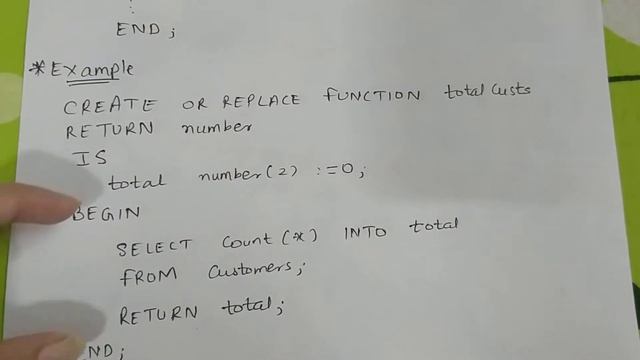 END ;
*Example
CREATE OR REPLACE FUNCTION totalCusts
RETURN number
IS
total number(2) :=0;
BEGIN
SELECT Count(*) INTO total
FROM Customers;
RETURN total;
ND;